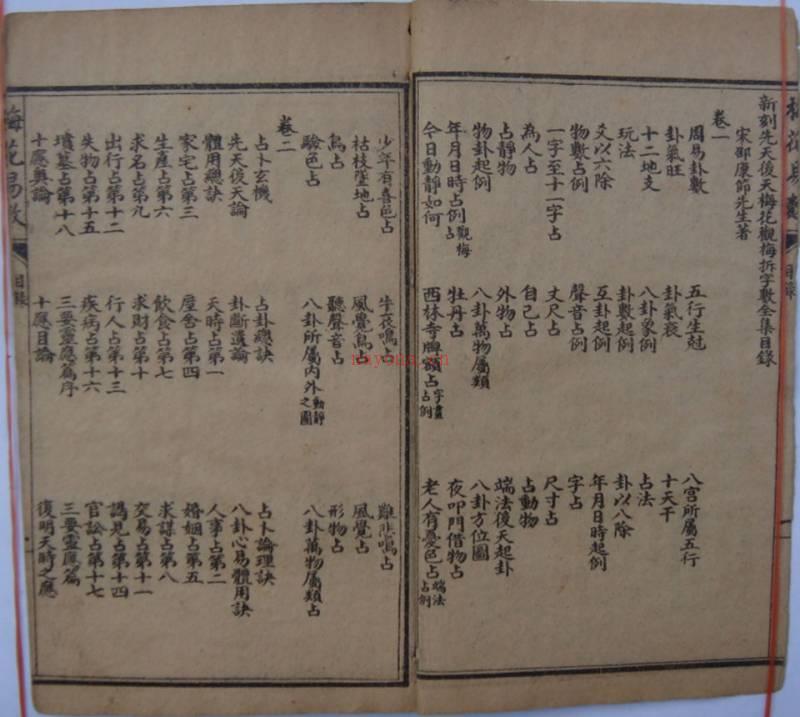 梅花易數 目錄 一
新刻先天後天梅花觀梅拆字數全集目錄
宋邵康節先生著
卷一
周易卦數 五行生尅 八宮所屬五行
卦氣旺 卦氣衰 十天干
十二地支 八卦象例 占法
玩法 卦數起例 卦以八除
爻以六除 互卦起例 年月日時起例
物數占例 聲音占例 字占
一字至十一字占 丈尺占 尺寸占
為人占 自己占 占動物
占靜物 外物占 端法後天起卦
物卦起例 八卦萬物屬類 八卦方位圖
年月日時占例觀梅占 牡丹占 夜叩門借物占
今日動靜如何 西林寺牌額占字畫占例 老人有憂色占端法占例
少年有喜色占 牛夜鳴占 雞悲鳴占
枯枝墜地占 風覺鳥占 風覺占
鳥占 聽聲音占 形物占
驗色占 八卦所屬內外動靜之圖 八卦萬物屬類占
卷二
占卜玄機 占卦總訣 占卜論理訣
先天後天論 卦斷遺論 八卦心易體用訣
體用總訣 天時占第一 人事占第二
家宅占第三 屋舍占第四 婚姻占第五
生產占第六 飲食占第七 求謀占第八
求名占第九 求財占第十 交易占第十一
出行占第十二 行人占第十三 謁見占第十四
失物占第十五 疾病占第十六 官訟占第十七
墳墓占第十八 三要靈應篇序 三要靈應篇
十應奧論 十應目論 復明天時之應
梅花易數 目錄